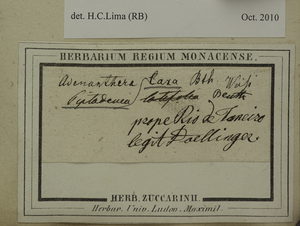 det. H.C.Lima (RB) Oct. 2010
HERBARIUM REGIUM MONACENSE.
Adenanthera Bth
Piptadenia latifolia Benth
prope Rio de Janeiro
legit Doellinger.
HERB. ZUCCARINII.
Herbar. Univ. Ludov. Maximil.